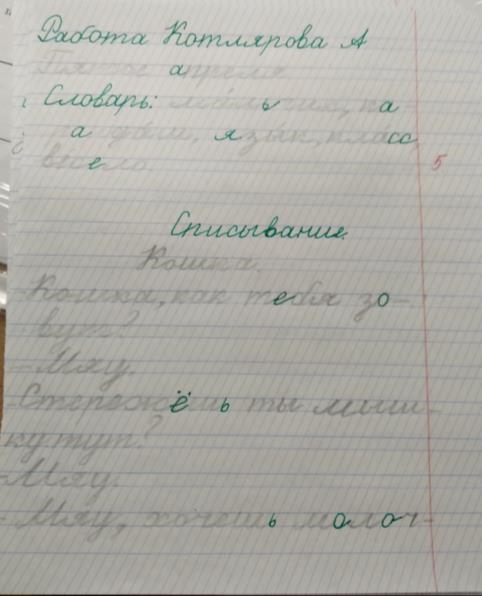 Работа Котлярова А
Пятое апреля
Словарь: мальчик, ка
рандаш, язык, класс,
весело.
5
Списывание.
Кошка.
- Кошка, как тебя зо-
вут?
- Мяу.
- Стережёшь ты мыш-
ку тут?
- Мяу.
- Мяу, хочешь молоч-